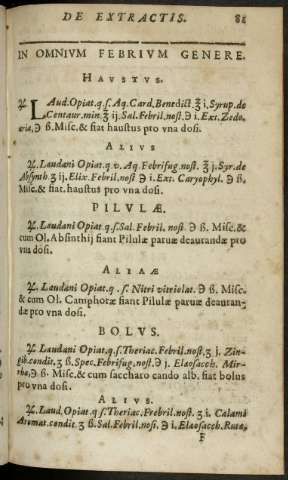 DE EXTRACTIS. 81
IN OMNIVM FEBRIVM GENERE.
HAVSTVS.
℞. LAud. Opiat. q. ſ. Aq. Card. Benedict. ℥ i. Syrup. de
Centaur. min. ℥ ij. Sal. Febril. noſt. ℈ i. Ext. Zedo-
aria, ℈ ß. Miſc. & fiat hauſtus pro vna doſi.
ALIVS
℞. Laudani Opiat. q v. Aq. Febrifug. noſt. ℥ j. Syr. de
Abſynth. ʒ ij. Elix. Febril. noſt ℈ i. Ext. Caryophyl. ℈ ß,
Miſc. & fiat. hauſtus pro vna doſi.
PILVLÆ.
℞. Laudani Opiat. q. ſ. Sal. Febril. noſt. ℈ ß. Miſc. &
cum Ol. Abſinthij fiant Pilulæ paruæ deaurandæ pro
vna doſi.
ALIAÆ
℞. Laudani Opiat. q. ſ. Nitri vitriolat. ℈ ß. Miſc.
& cum Ol. Camphoræ fiant Pilulæ paruæ deauran-
dæ pro vna doſi.
BOLVS.
℞. Laudani Opiat. q. ſ. Theriac. Febril. noſt. ʒ j. Zin-
gib. condit. ʒ ß. Spec. Febrifug. noſt. ℈ j. Elaoſacch. Mir-
rhæ, ℈ ß. Miſc. & cum ſaccharo cando alb. fiat bolus
pro vna doſi.
ALIVS.
℞. Laud, Opiat. q ſ. Theriac. Frebril. noſt. ʒ i. Calami
Aromat. condit. ʒ ß. Sal. Febril. noſi. ℈ i. Elaoſacch. Rutæ,
F